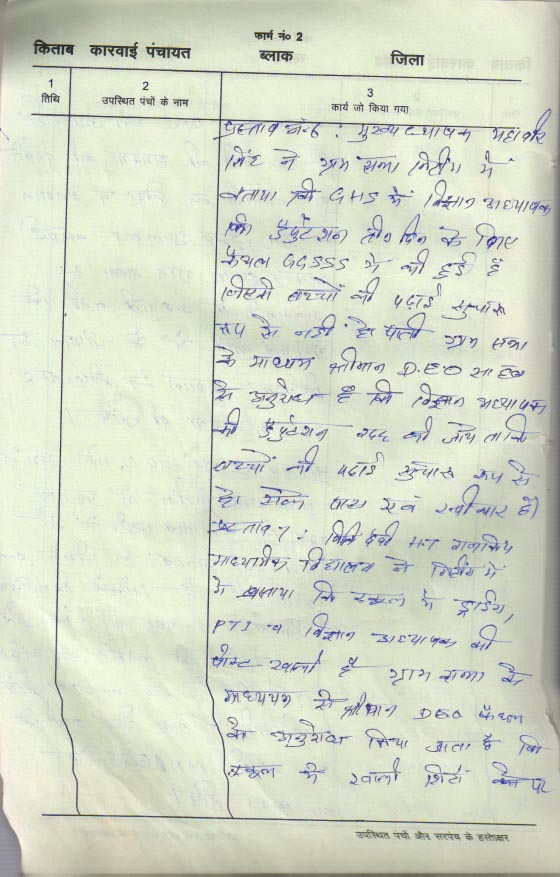 फार्म नं० 2
किताब कारवाई पंचायत ब्लाक जिला
1 2 3
तिथि उपस्थित पंचों के नाम कार्य जो किया गया
प्रस्ताव नं० 6 : मुख्यध्यापक महावीर
सिंह ने ग्राम सभा मिटींग में
बताया कि GHS के विज्ञान अध्यापक
की डैपुटेशन तीन दिन के लिए
कैथल GGSSS में की हुई है
जिससे बच्चों की पढाई सुचारू
रूप से नही हो पाती ग्राम सभा
के माध्यम श्रीमान D.EO साहब
से अनुरोध है कि विज्ञान अध्यापक
की डैपुटेशन रदद की जाये ताकि
बच्चों की पढाई सुचारू रूप से
हो सके पास एवं स्वीकार है।
प्रस्ताव 7 : देवी HT राजकिय
माध्यमिक विद्यालय ने मिटींग में
बताया कि स्कूल में ड्राईंग,
PTI व विज्ञान अध्यापक की
पोस्ट खाली है ग्राम सभा के
माध्यम से श्रीमान DEO कैथल
से अनुरोध किया जाता है कि
स्कूल में खाली सिटों पर
उपस्थित पंचों और सरपंच के हस्ताक्षर